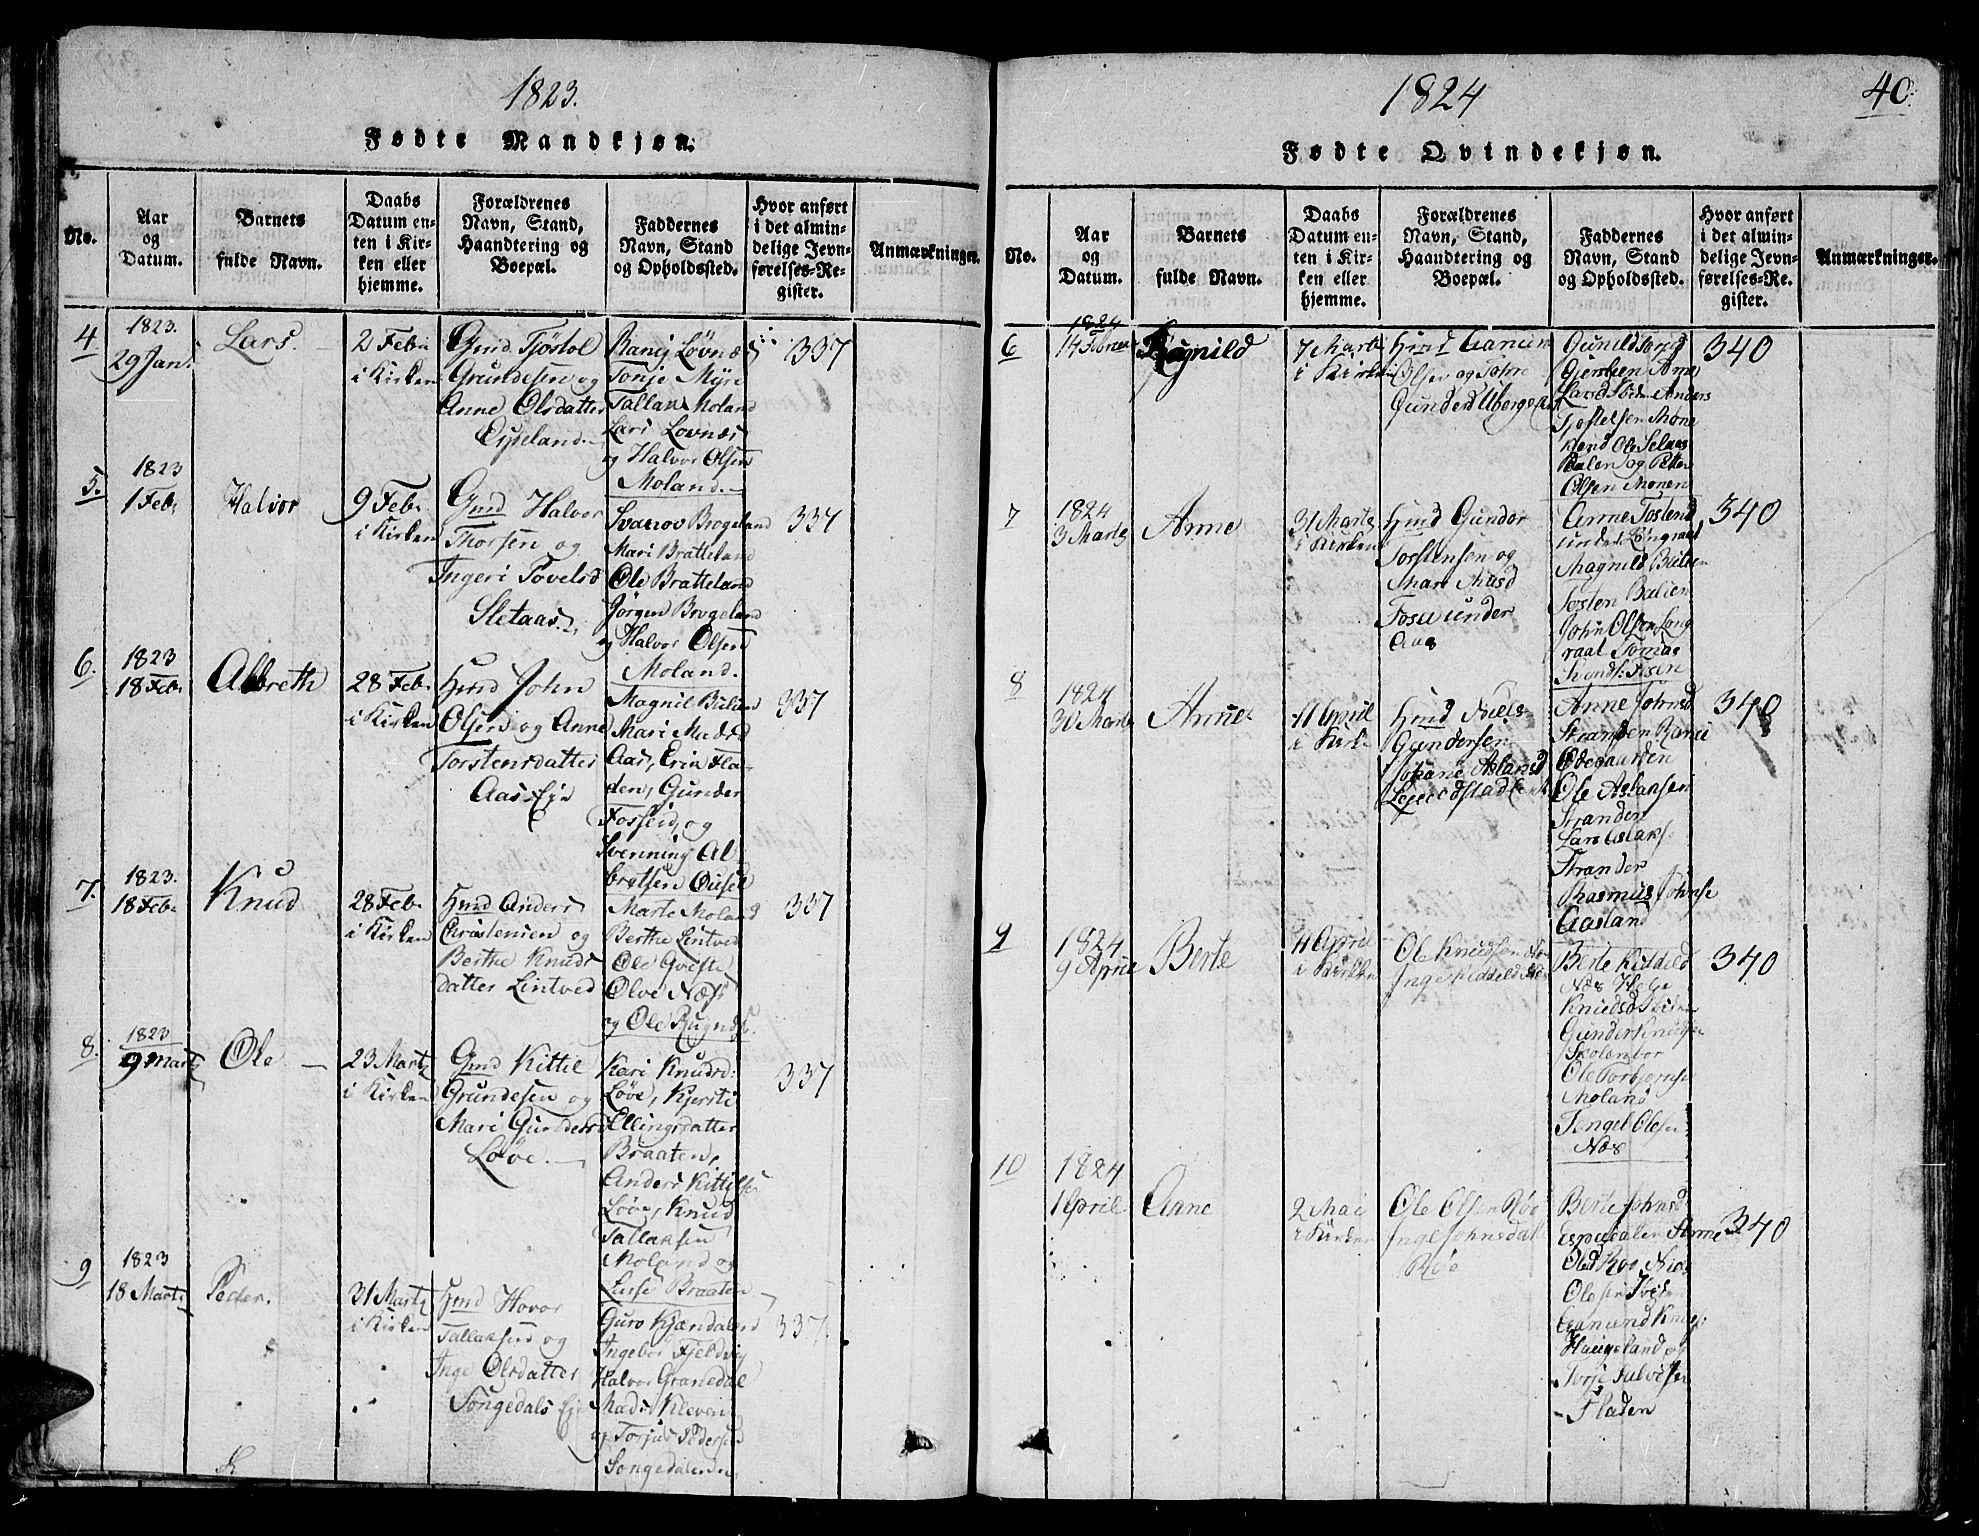 1823.
Fødte Mandkjøn.
No.
Aar
og
Datum.
Barnets
fulde Navn.
Daabs
Datum en-
ten i Kir-
ken eller
hjemme.
Forældrenes
Navn, Stand,
Haandtering og
Boepæl.
Faddernes
Navn, Stand
og Opholdssted.
Hvor anført
i det almin-
delige Jevn-
førelses-Re-
gister.
Anmærkninger.
4.
1823.
29 Jan:
Lars.
2 Feb:
i Kirken
Gmd. Tjöstol
Grundesen og
Anne Olsdatter
Espeland.
Ranej Løvnæs
Tonje Myre
Tallak Moland
Lars Lovnæs
og Halvor Olsen
Moland.
337
5.
1823
1 Feb:
Halvor
9 Feb:
i Kirken
Gmd Halvor
Thorsen og
Ingeri Tovelsd
Sletaas.
Brogeland
Mari Bratteland
Ole Bratteland
Jörgen Brogeland
og Halvor Olsen
Moland.
337
6.
1823
18 Feb:
Albreth
28 Feb:
i Kirken
Hmd John
Olsen og Anne
Torstensdatter
Aas Eje
Magnil Bulien
Mari Madsd
Aas, Erin Fla-
den, Gunder
Fosseid, og
Svenning Al
bretsen
337
7.
1823.
18 Feb:
Knud
28 Feb:
i Kirken
Hmd Anders
Christensen og
Berthe Knuds
datter Lintved
Marte Moland
Berthe Lintved
Ole Qvifte
Olve Næs
og Ole
337
8.
1823
9 Martz
Ole
23 Martz
i Kirken
Gmd Kittil
Grundesen og
Mari Gunders
Løve.
Kari Knudsd:
Løve, Kjersti
Ellingsdatter
Braaten,
Anders Kittilse
Løve, Knud
Tallaksen
Moland og
Braaten
337
9
1823
18 Marts
Peder.
31 Martz
i Kirken
Hmd Hovor
Tallaksen og
Inge Olsdatter
Songedals Eje
Guro Kjændalen
Ingebor Fjeldvig
Halvor Granedal
Mads Kleven
og Torjus Pedersen
Songedalen
337.
1824
40.
Fødte Qvindekjøn.
No.
Aar
og
Datum.
Barnets
fulde Navn.
Daabs
Datum en-
ten i Kir-
ken eller
hjemme.
Forældrenes
Navn, Stand,
Haandtering og
Boepæl.
Faddernes
Navn, Stand
og Opholdssted.
Hvor anført
i det almin-
delige Jevn-
førelses-Re-
gister.
Anmærkninger.
6
1824
14 Februar
Ragnild
7 Marts
i Kirken
Hmd
Olsen og Tohre
Gundersd
Gunild
Arne
Anders
Tjostelsen Mone
Ole Selaas
Dalen og Petter
Olsen Monen
340
7
1824
3 Marts
Anne
31 Marts
i Kirken
Hmd Gundor
Torstensen og
Mari Masd
Fosse under
Aas
Anne
under Longraat
Magnild Bulien
Torsten Bulien
John Olsen Long
raat Tomas
340
8
1824
30 Marts
Anne
11 April
i Kirke
Hmd Niels
Gundersen
Johane Aslaksd
Anne Johnsd
Stranden Ranei
Odegaarden
Ole Aslaksen
Stranden
Lars Aslaks
Stranden
Rasmus Johnse
Aasland
340
9
1824
9 Aprie
Berte
11 April
i Kirken
Ole Knudsen
Inge Kiddelsd
Berte Kiddelsd
Næs Helge
Knudsd
Gunder Knudse
Skolenbor
Ole Torbjørnse
Moland
Tengel Olesen
Næs
340
10
1824
1 April
Aane
2 Mai
i Kirken
Ole Olsen Röe
Inge Johnsdatt
Röe
Berte Johnsd
Espedalen Anne
Olsd Roe Nids
Olesen
Aamund Knuds
Haugeland og
Torje Salvesen
Fladen
340